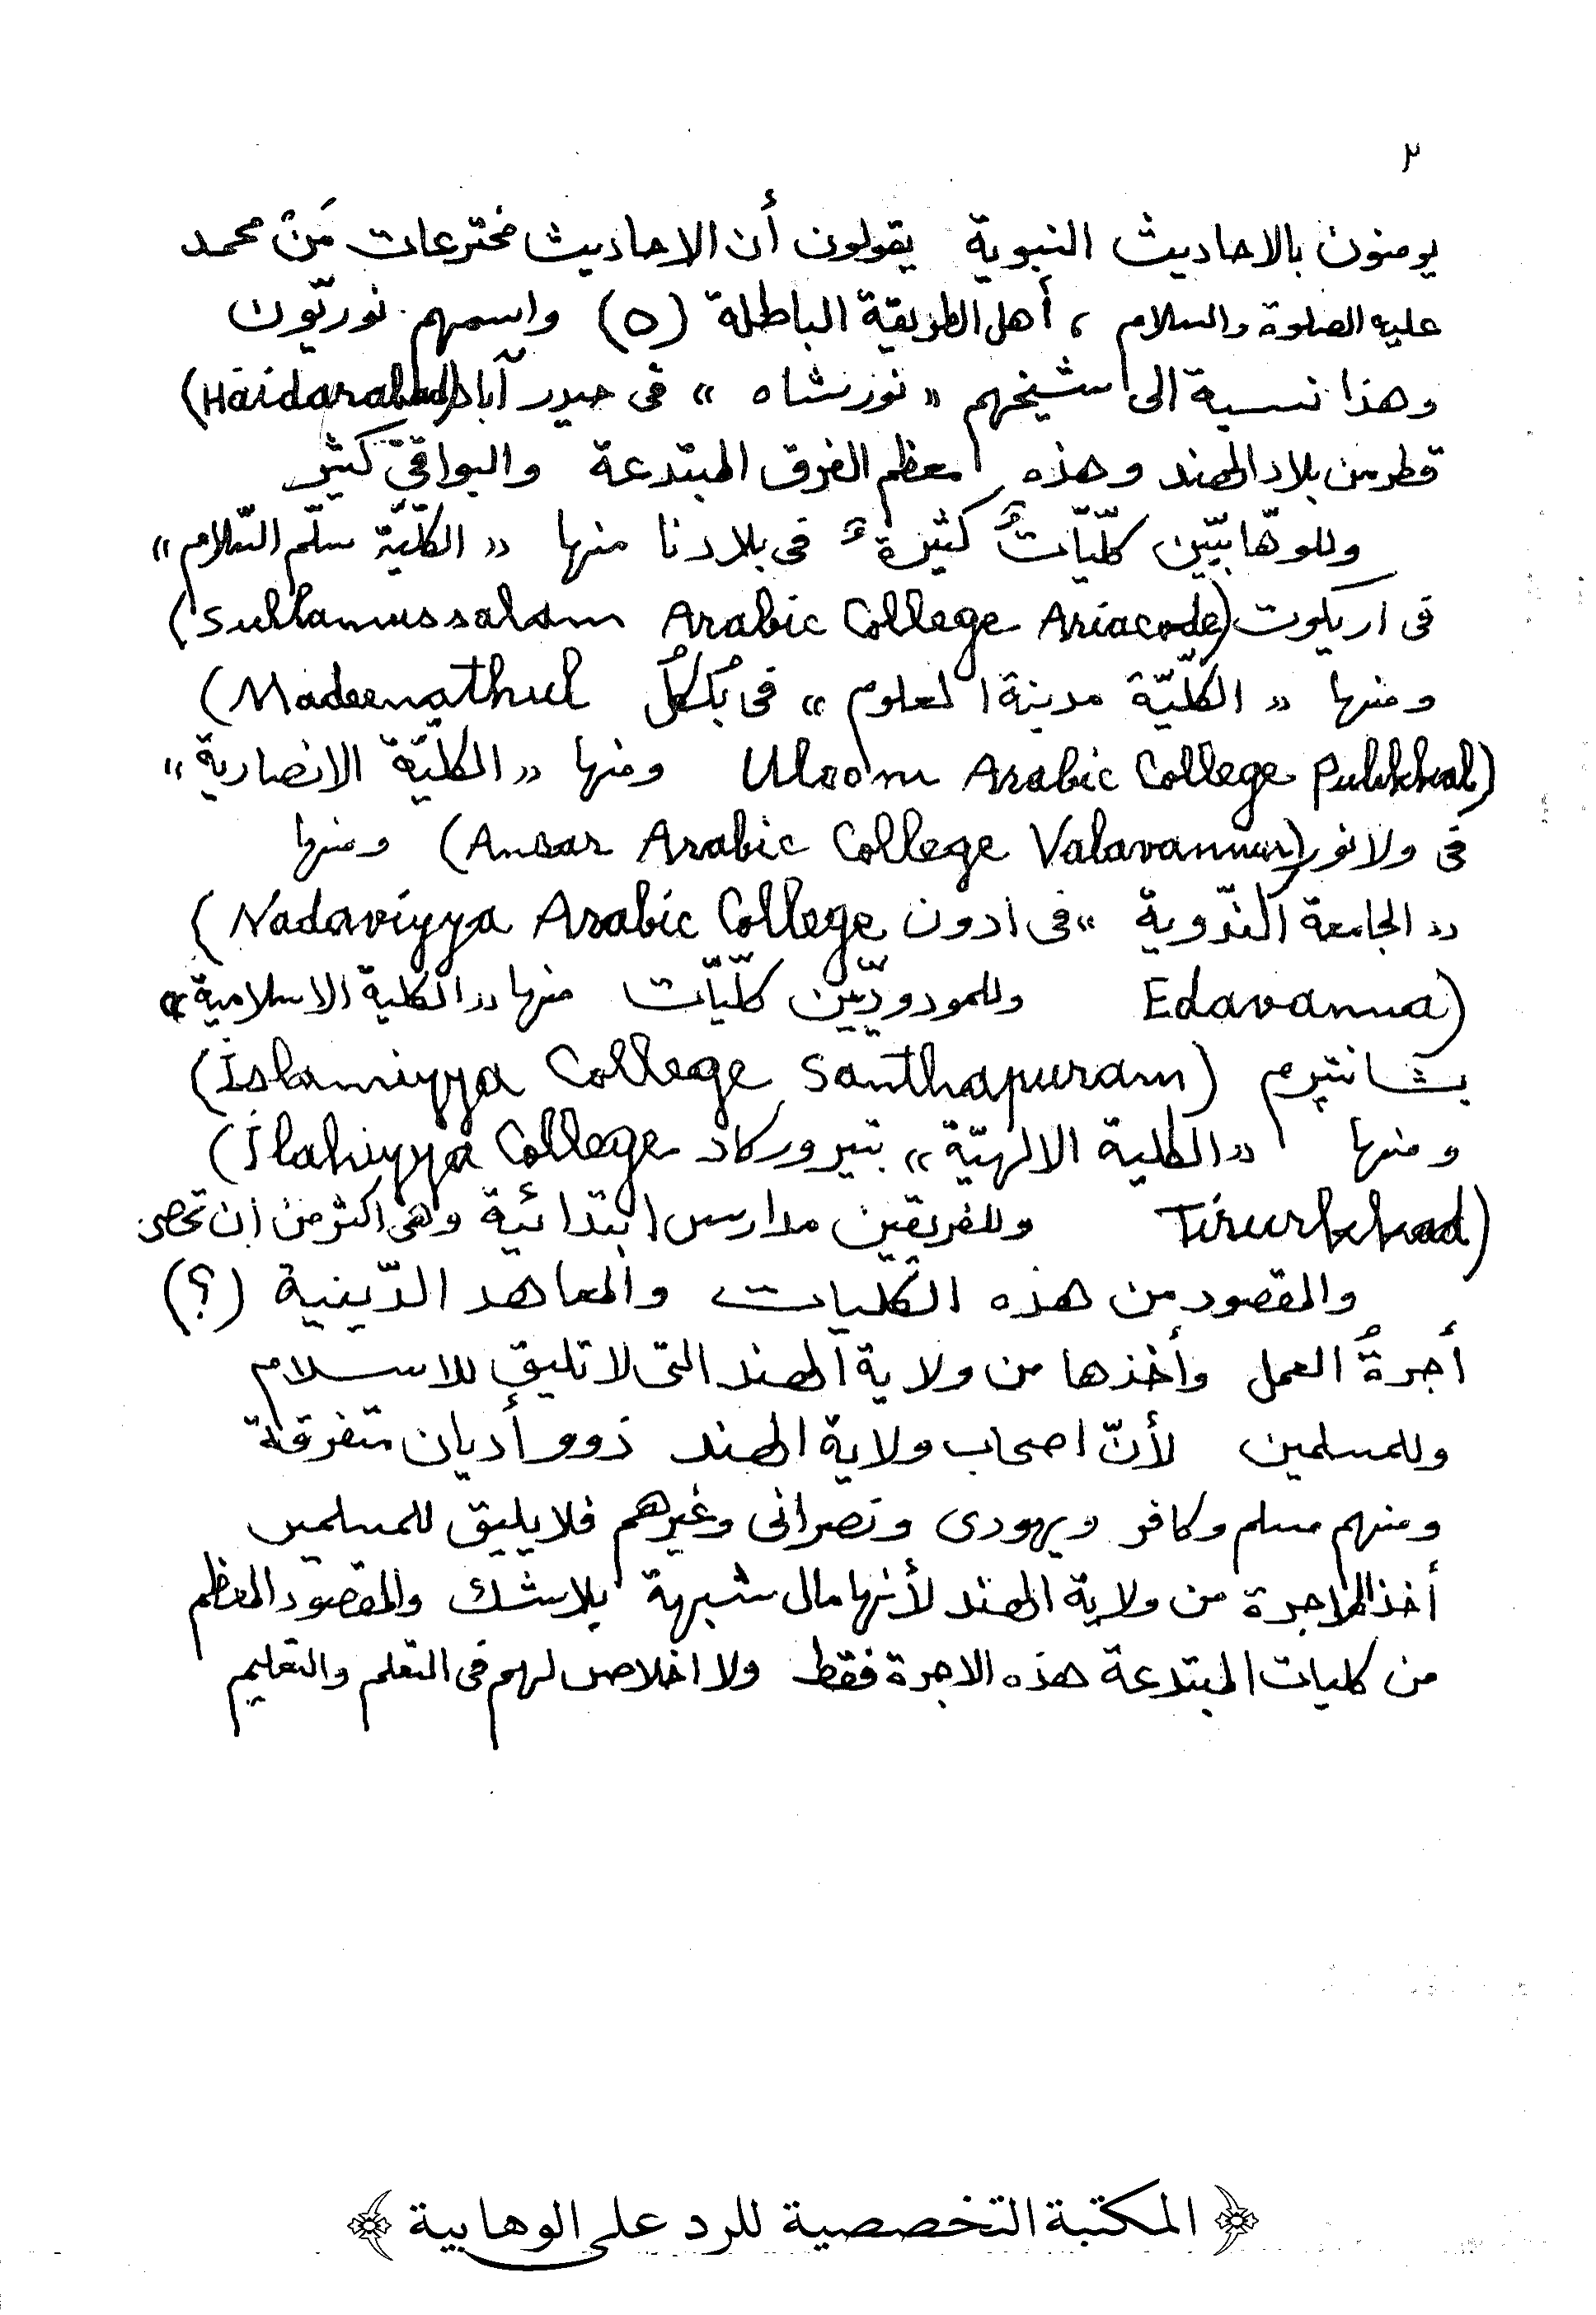 ٢
يومنون بالاحاديث النبوية يقولون أن الاحاديث مخترعات مَنْ محمد
عليه الصلوة والسلام ، أهل الطريقة الباطلة (٥) واسمهم نوريّون
وهذا نسبة الى شيخهم « نورشاه » فى حيدر آباد (Haidarabad)
قطر من بلاد الهند وهذه معظم الفرق المبتدعة والبواقيّ كثير
وللوهّابيّين كلّيّاتٌ كثيرةٌ فى بلادنا منها « الكلّيّة سلّم السّلام »
فى اريكوت (Sullamussalam Arabic College Ariacode)
ومنها « الكلّيّة مدينة العلوم » فى بُكلُ (Madeenathul
Uloom Arabic College Pulikkal) ومنها « الكلّيّة الانصارية »
فى ولانور (Ansar Arabic College Valavannur) ومنها
« الجامعة النّدوية » فى ادون (Nadaviyya Arabic College
Edavanna) وللمودوديّين كلّيّات منها « الكلية الاسلامية »
بشانتپرم (Islamiyya College Santhapuram)
ومنها « الكلية الالهيّة » بتيروركاد (Ilahiyya College
Tirurkkad) وللفريقين مدارس ابتدائية وهى اكثر من ان تحصى
والمقصود من هذه الكليات والمعاهد الدّينية (؟)
أجرةُ العمل وأخذها من ولاية الهند التى لا تليق للاسلام
وللمسلمين لأنّ اصحاب ولاية الهند ذوو أديان متفرقة
ومنهم مسلم وكافر ويهودى ونصرانى وغيرهم فلا يليق للمسلمين
أخذ الاجرة من ولاية الهند لأنها مال شبهة بلا شك والمقصود المعظم
من كليات المبتدعة هذه الاجرة فقط ولا اخلاص لهم فى التعلم والتعليم
﴿ المكتبة التخصصية للرد على الوهابية ﴾